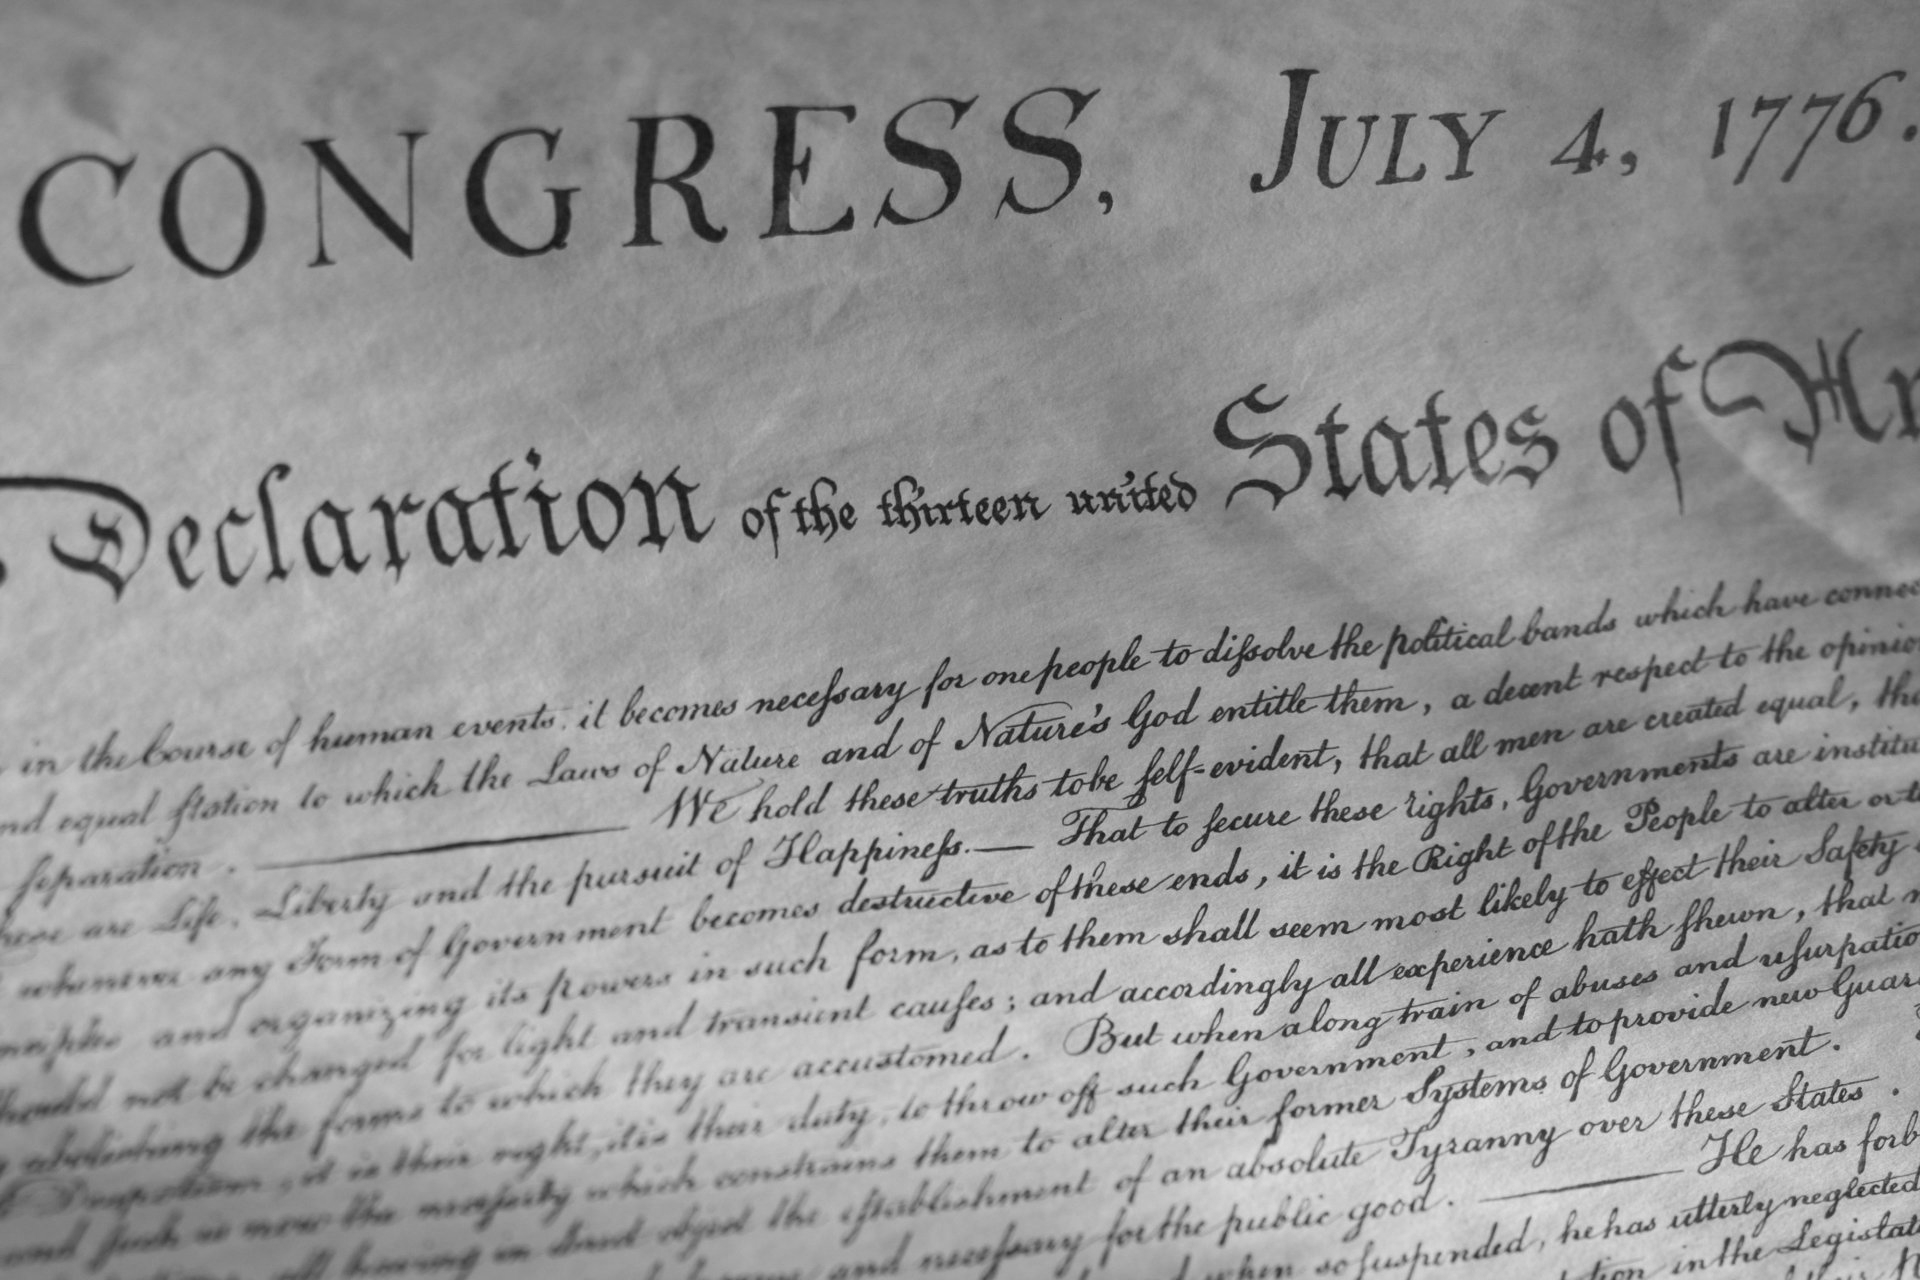 CONGRESS, JULY 4, 1776.
Declaration of the thirteen united States of Am
in the Course of human events, it becomes neceſsary for one people to diſsolve the political bands which have connec
nd equal ſtation to which the Laws of Nature and of Nature's God entitle them, a decent respect to the opinio
ſeparation. We hold these truths to be ſelf-evident, that all men are created equal, tha
these are Life, Liberty and the pursuit of Happineſs.— That to ſecure these rights, Governments are institu
whenever any Form of Government becomes destructive of these ends, it is the Right of the People to alter or to
and organizing its powers in such form, as to them shall seem most likely to effect their Safety
not be changed for light and transient cauſes; and accordingly all experience hath ſhewn, that
abolishing the forms to which they are accustomed. But when a long train of abuses and uſurpatio
it is their right, it is their duty, to throw off such Government, and to provide new Guar
and ſuch is now the neceſsity which constrains them to alter their former Systems of Government.
all having in direct object the eſtablishment of an absolute Tyranny over these States.
and neceſsary for the public good. He has forb
when so ſuspended, he has utterly neglected
in the Legislat